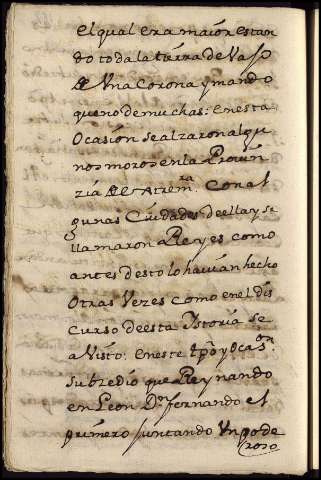 el qual era maior estan
do toda la tierra devajo
de Una Corona y mando
que no de muchas: en esta
Ocasión se alzaron algu
nos moros en la Provin
zia de Estremra. Con al
gunas Ciudades de ella y se
llamaron Reyes como
antes desto lo havian hecho
Otras Vezes como en el dis
curso de esta Istoria se
a Visto: en este tpo y Ocason
Subzedio que Reynando
en Leon Dn fernando el
primero juntando Un pode
roso